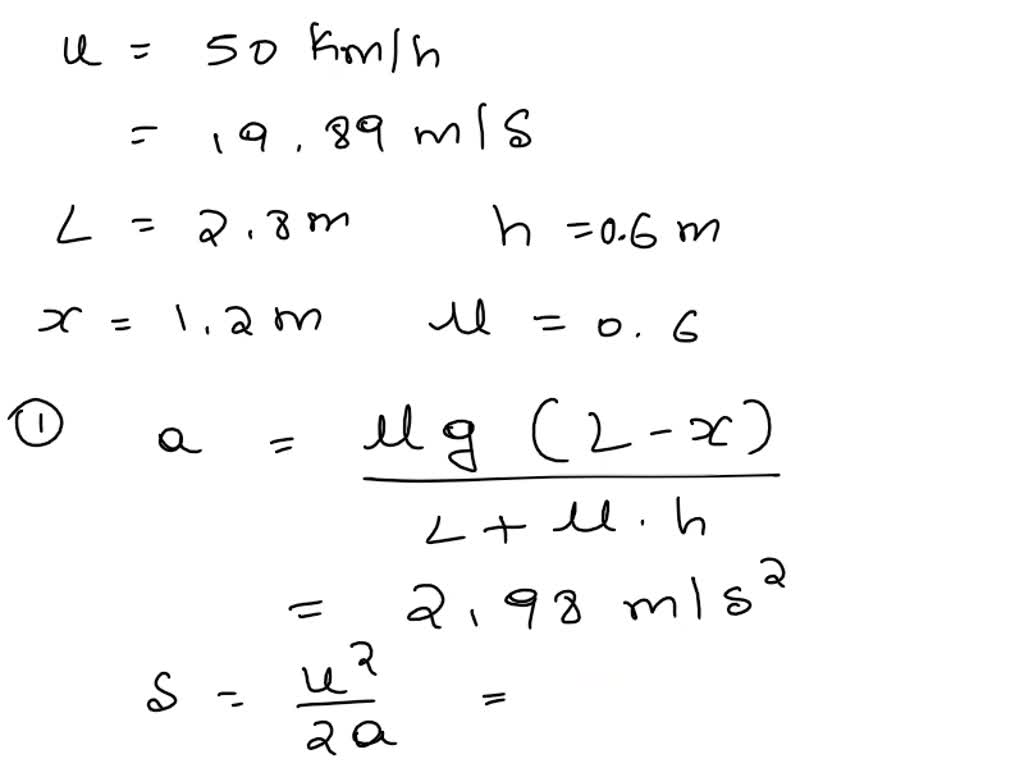 u = 50 Km/h
= 19.89 m/s
L = 2.8m h = 0.6 m
x = 1.2m μ = 0.6
① a = μg (L-x) / L + μ.h
= 2.98 m/s²
S = u²/2a =